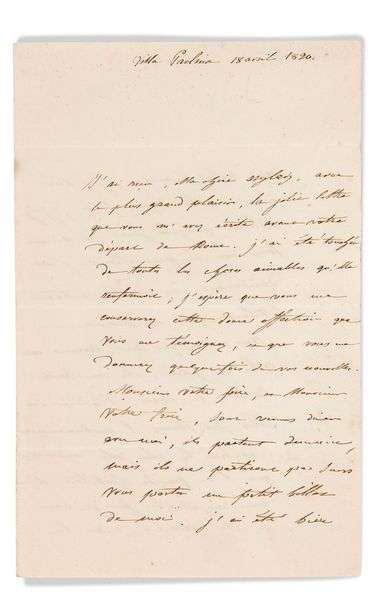 Villa Paolina 18 avril 1820.
J'ai reçu, Ma chère avec
le plus grand plaisir, la jolie lettre
que vous m'avez écrite avant votre
départ de Rome. j'ai été touchée
de toutes les choses aimables qu'elle
renfermoit, j'espère que vous me
conserverez cette douce affection que
vous me témoignez, et que vous me
donnerez quelquefois de vos nouvelles.
Monsieur votre père, et Monsieur
votre frère, sont venus diner
avec moi, ils partent demain,
mais ils ne partiront pas sans
vous porter un petit billet
de moi. j'ai été bien